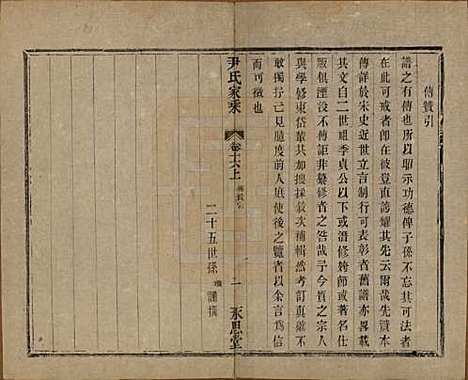 傳贊引
譜之有傳也所以顯示功德俾子孫不可法者
在此可戒者即在彼豈直誇耀其先云爾哉先賢本
傳詳於宋史近世立言制行可表彰者舊譜亦畧載
其文自二世祖季貞公以下或潛修跨師或著名仕
版俱湮沒不傳詎非纂修者之咎哉予今質之宗人
與學修東岱輩共加搜採續次補輯然考訂真確不
敢獨抒己見隨度前人庭使後之覽者以余言為信
而可徵也
二十五世孫 謹撰
尹氏家乘
卷十六上
傳贊引
一
永思堂